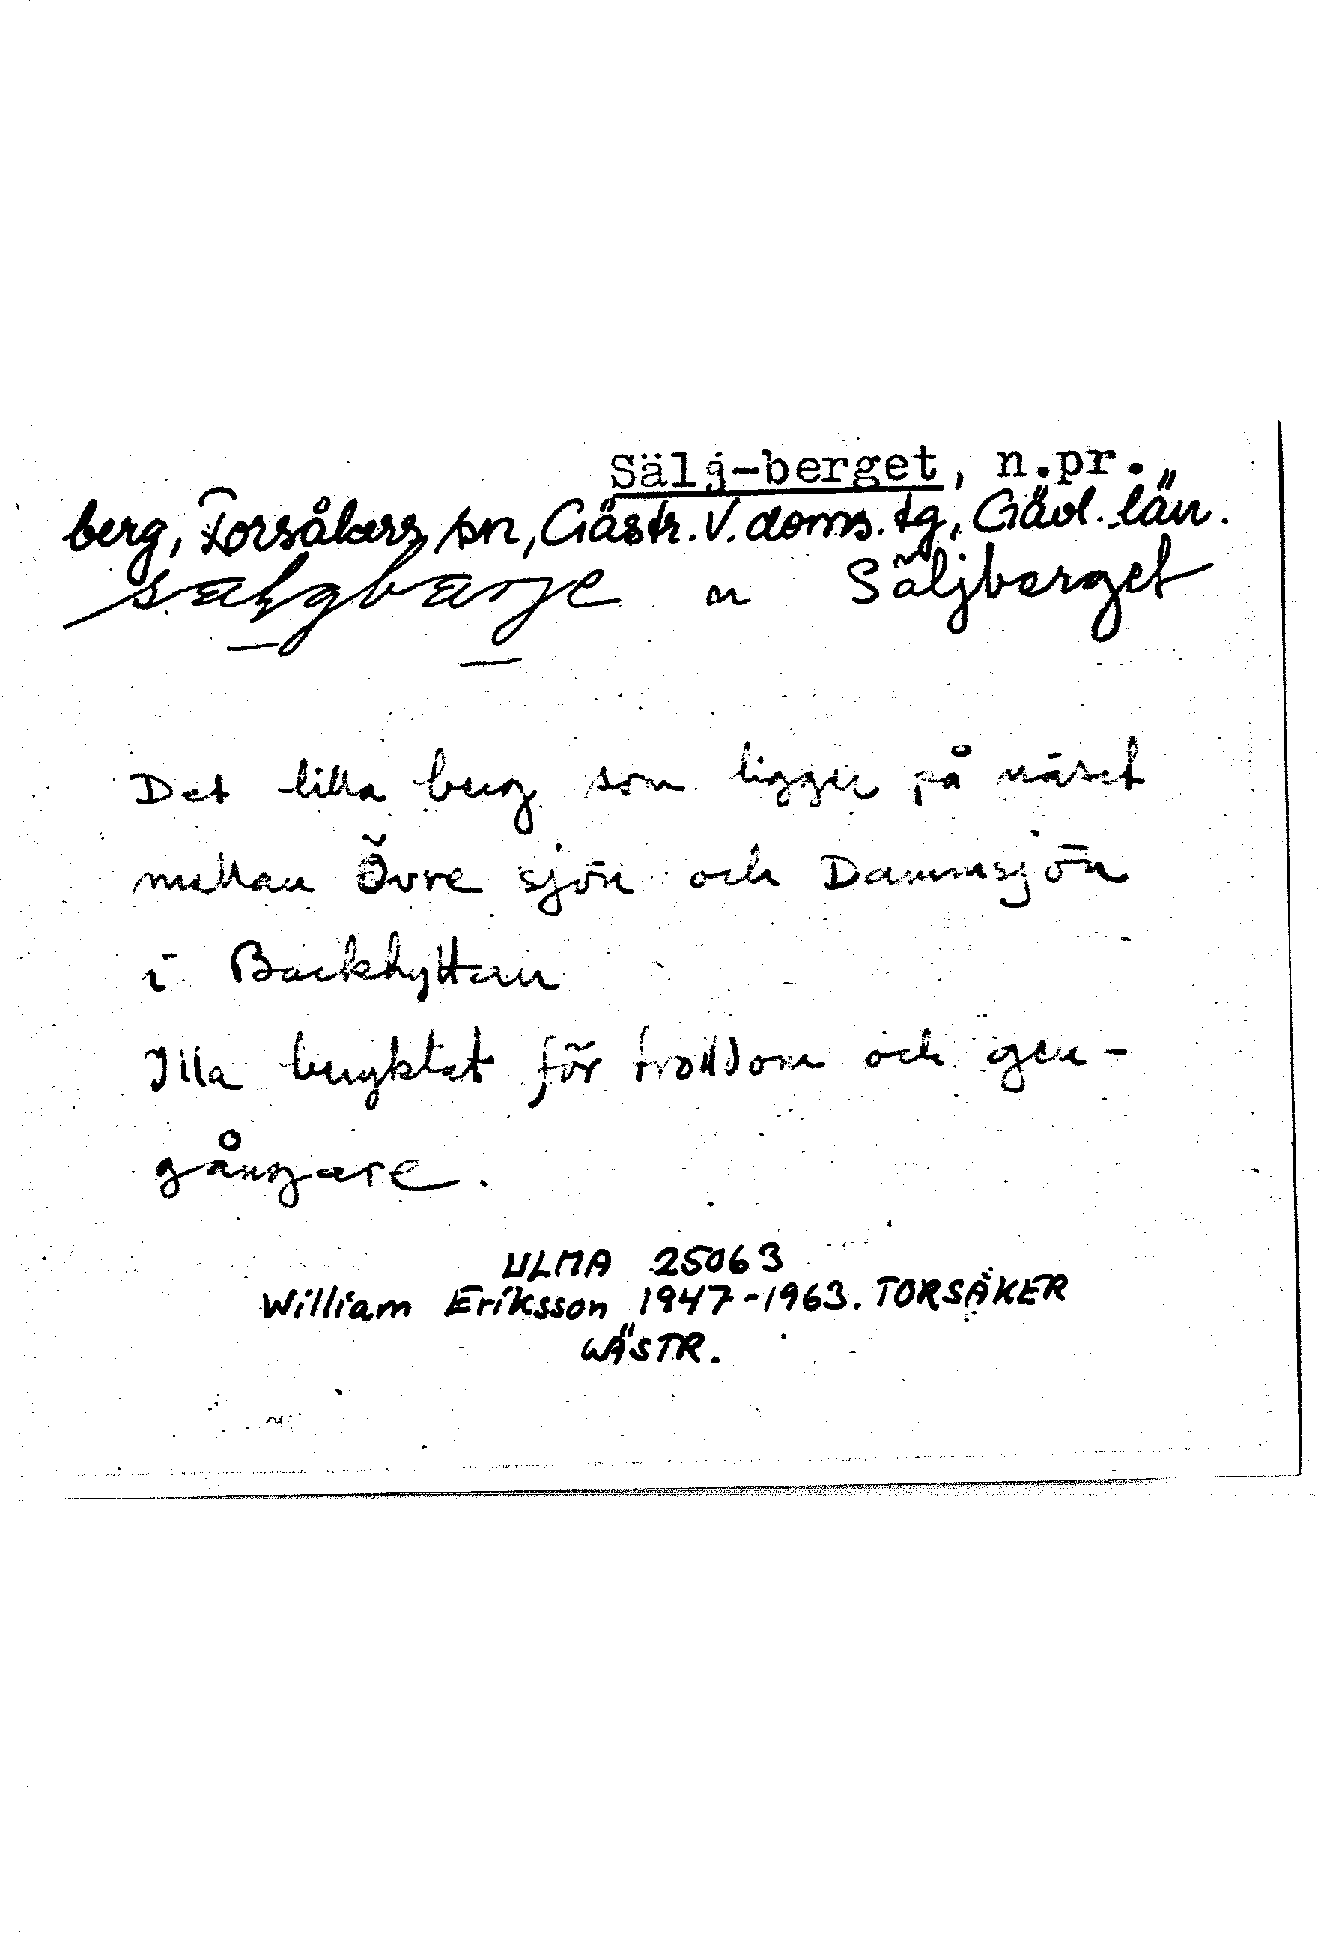 Sälj-berget, n.pr.
berg, Torsåkers sn, Gästr. V. doms. tg, Gävl. län.
n Säljberget
Det lilla berg som ligger på näset
mellan Övre sjön och Dammsjön
i Backhyttan
Illa beryktat för trolldom och gen-
gångare.
ULMA 25063
William Eriksson 1947-1963. TORSÅKER
GÄSTR.